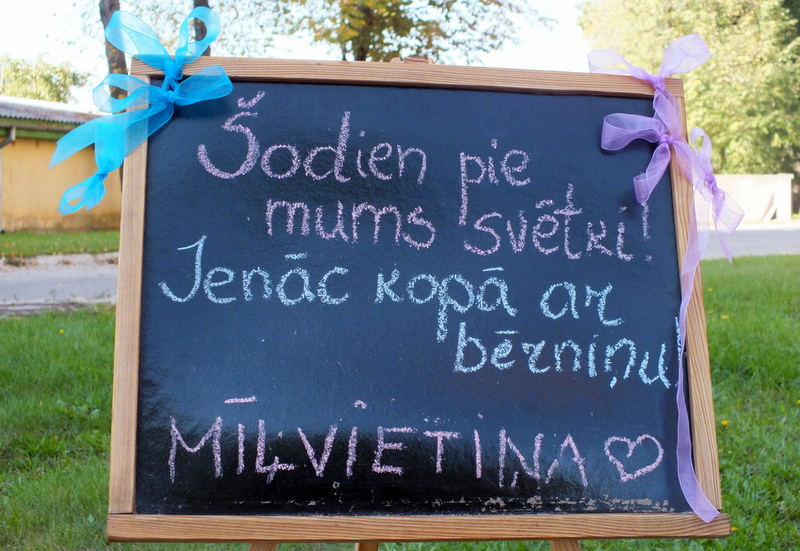 Šodien pie
mums svētki!
Jenāc kopā ar
bērniņu
MĪĻVIETIŅA ♡